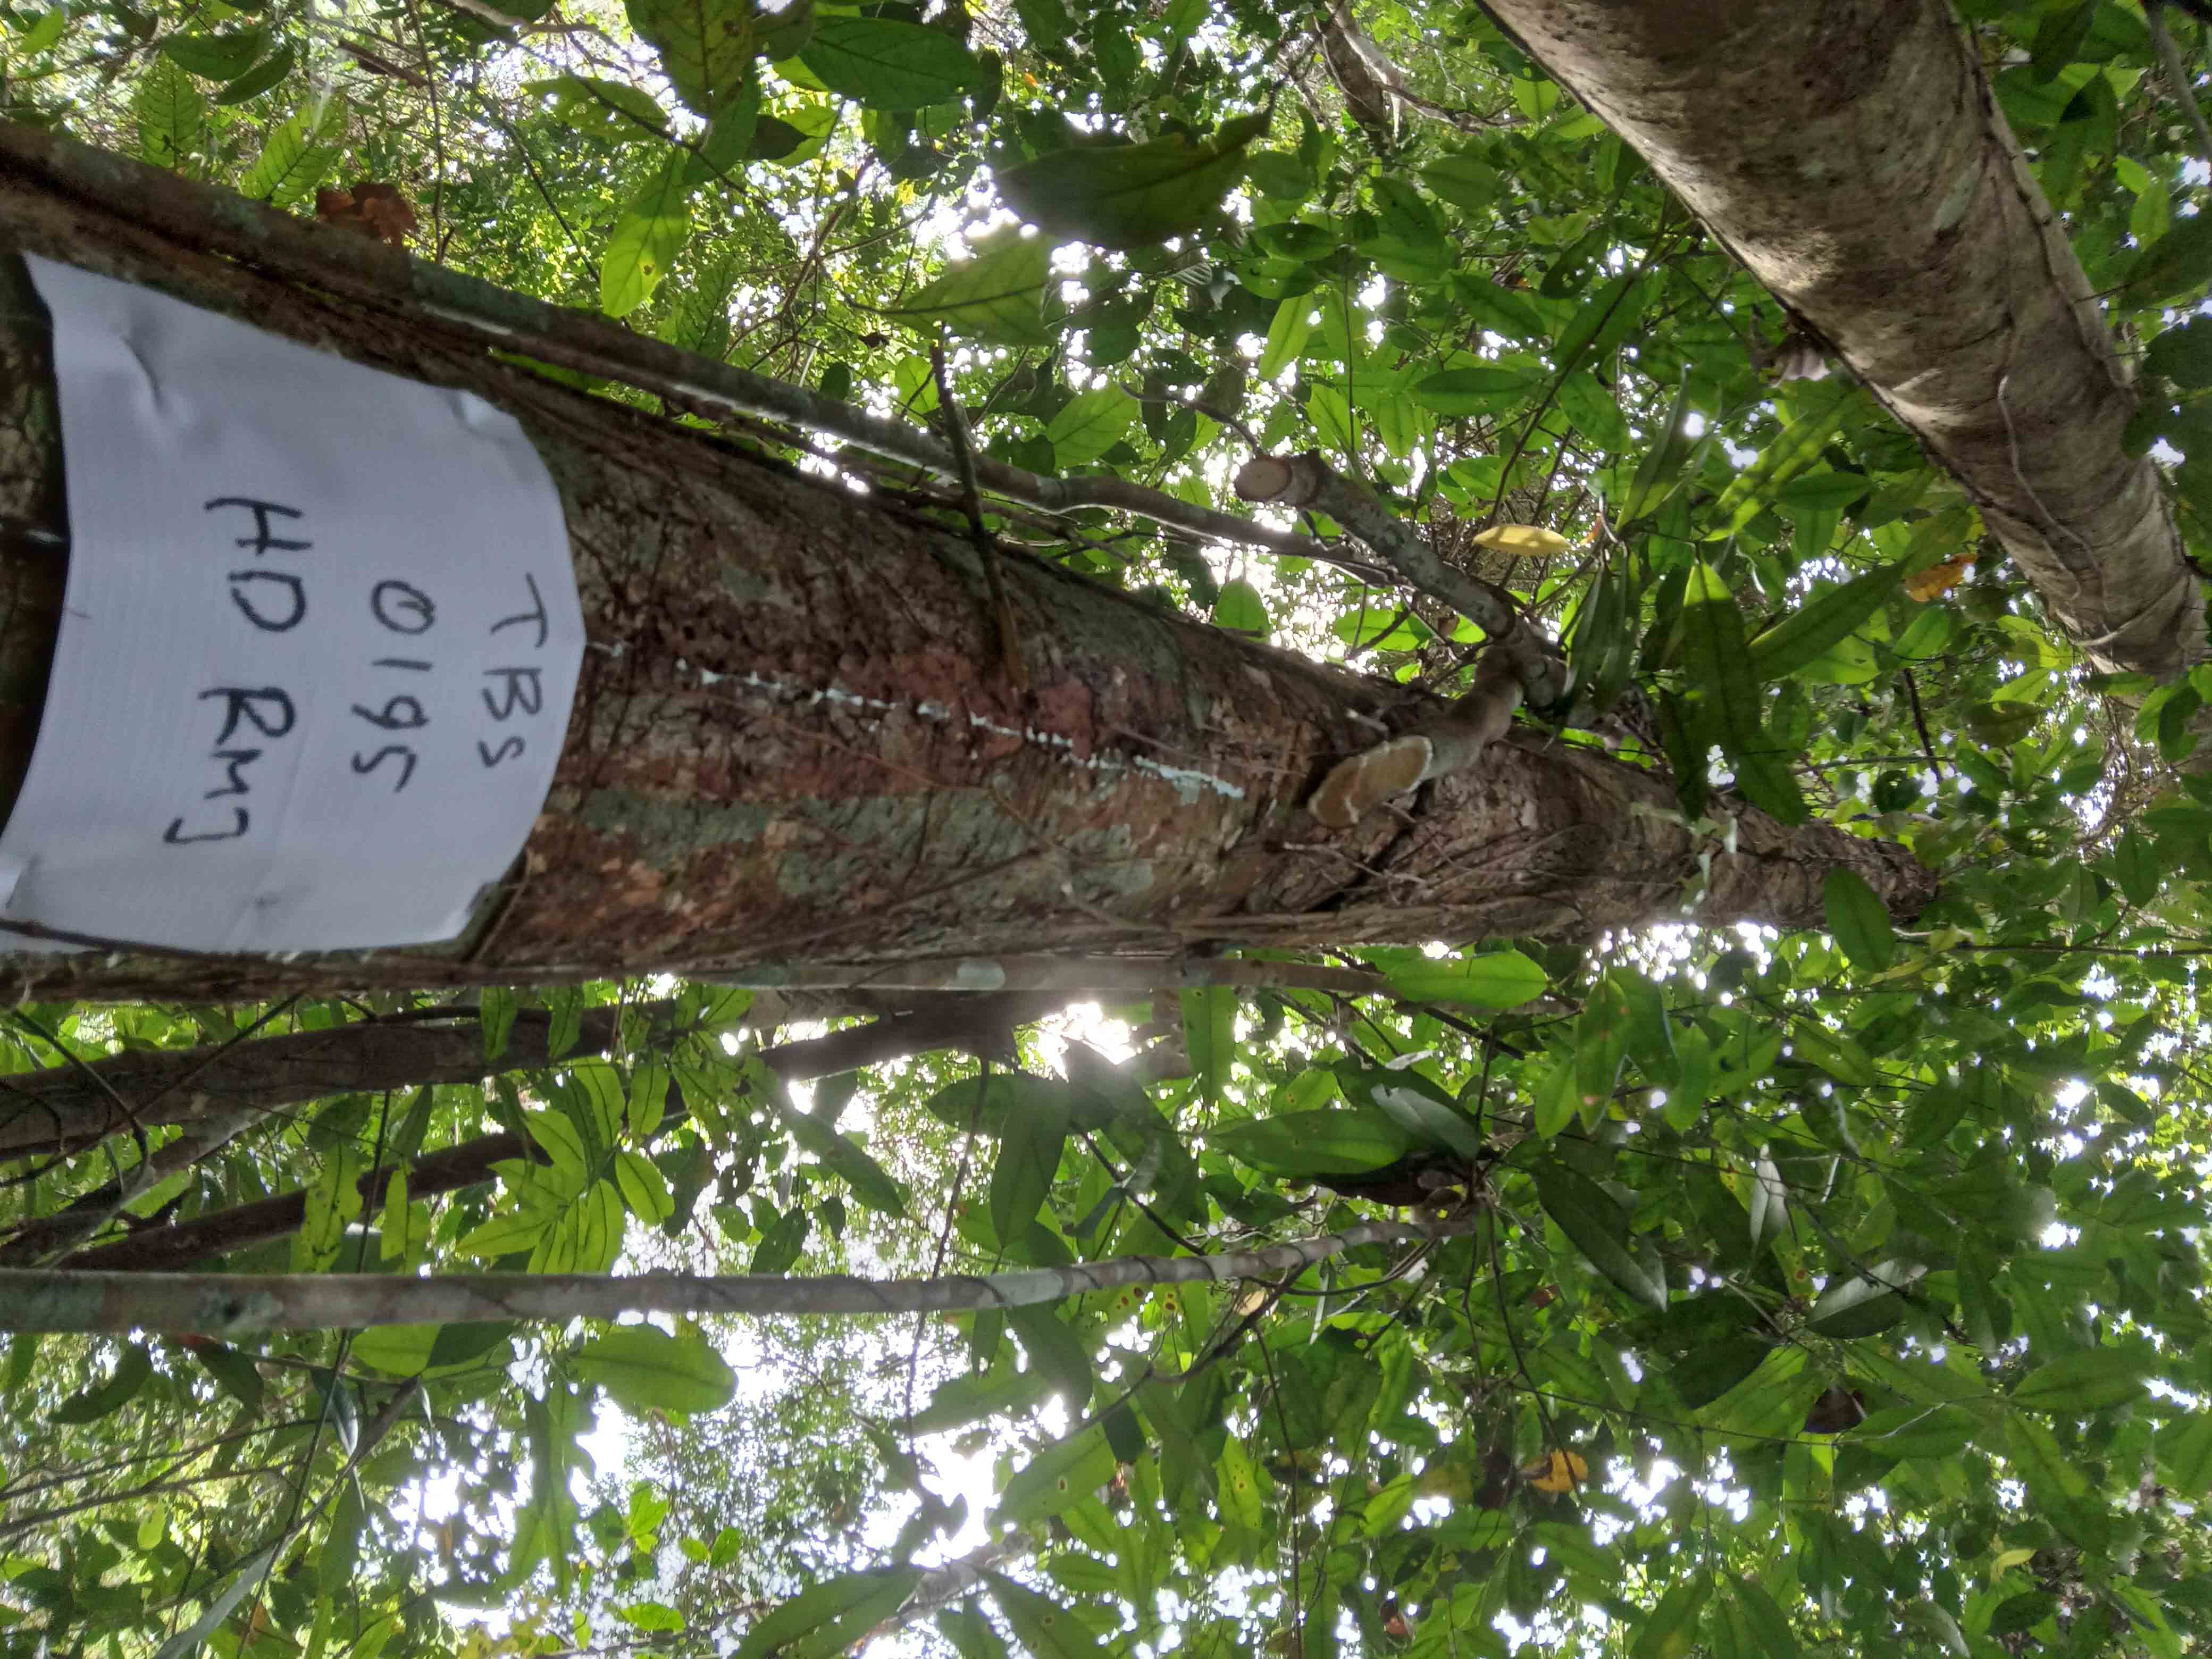 TBS
0195
HD RMJ